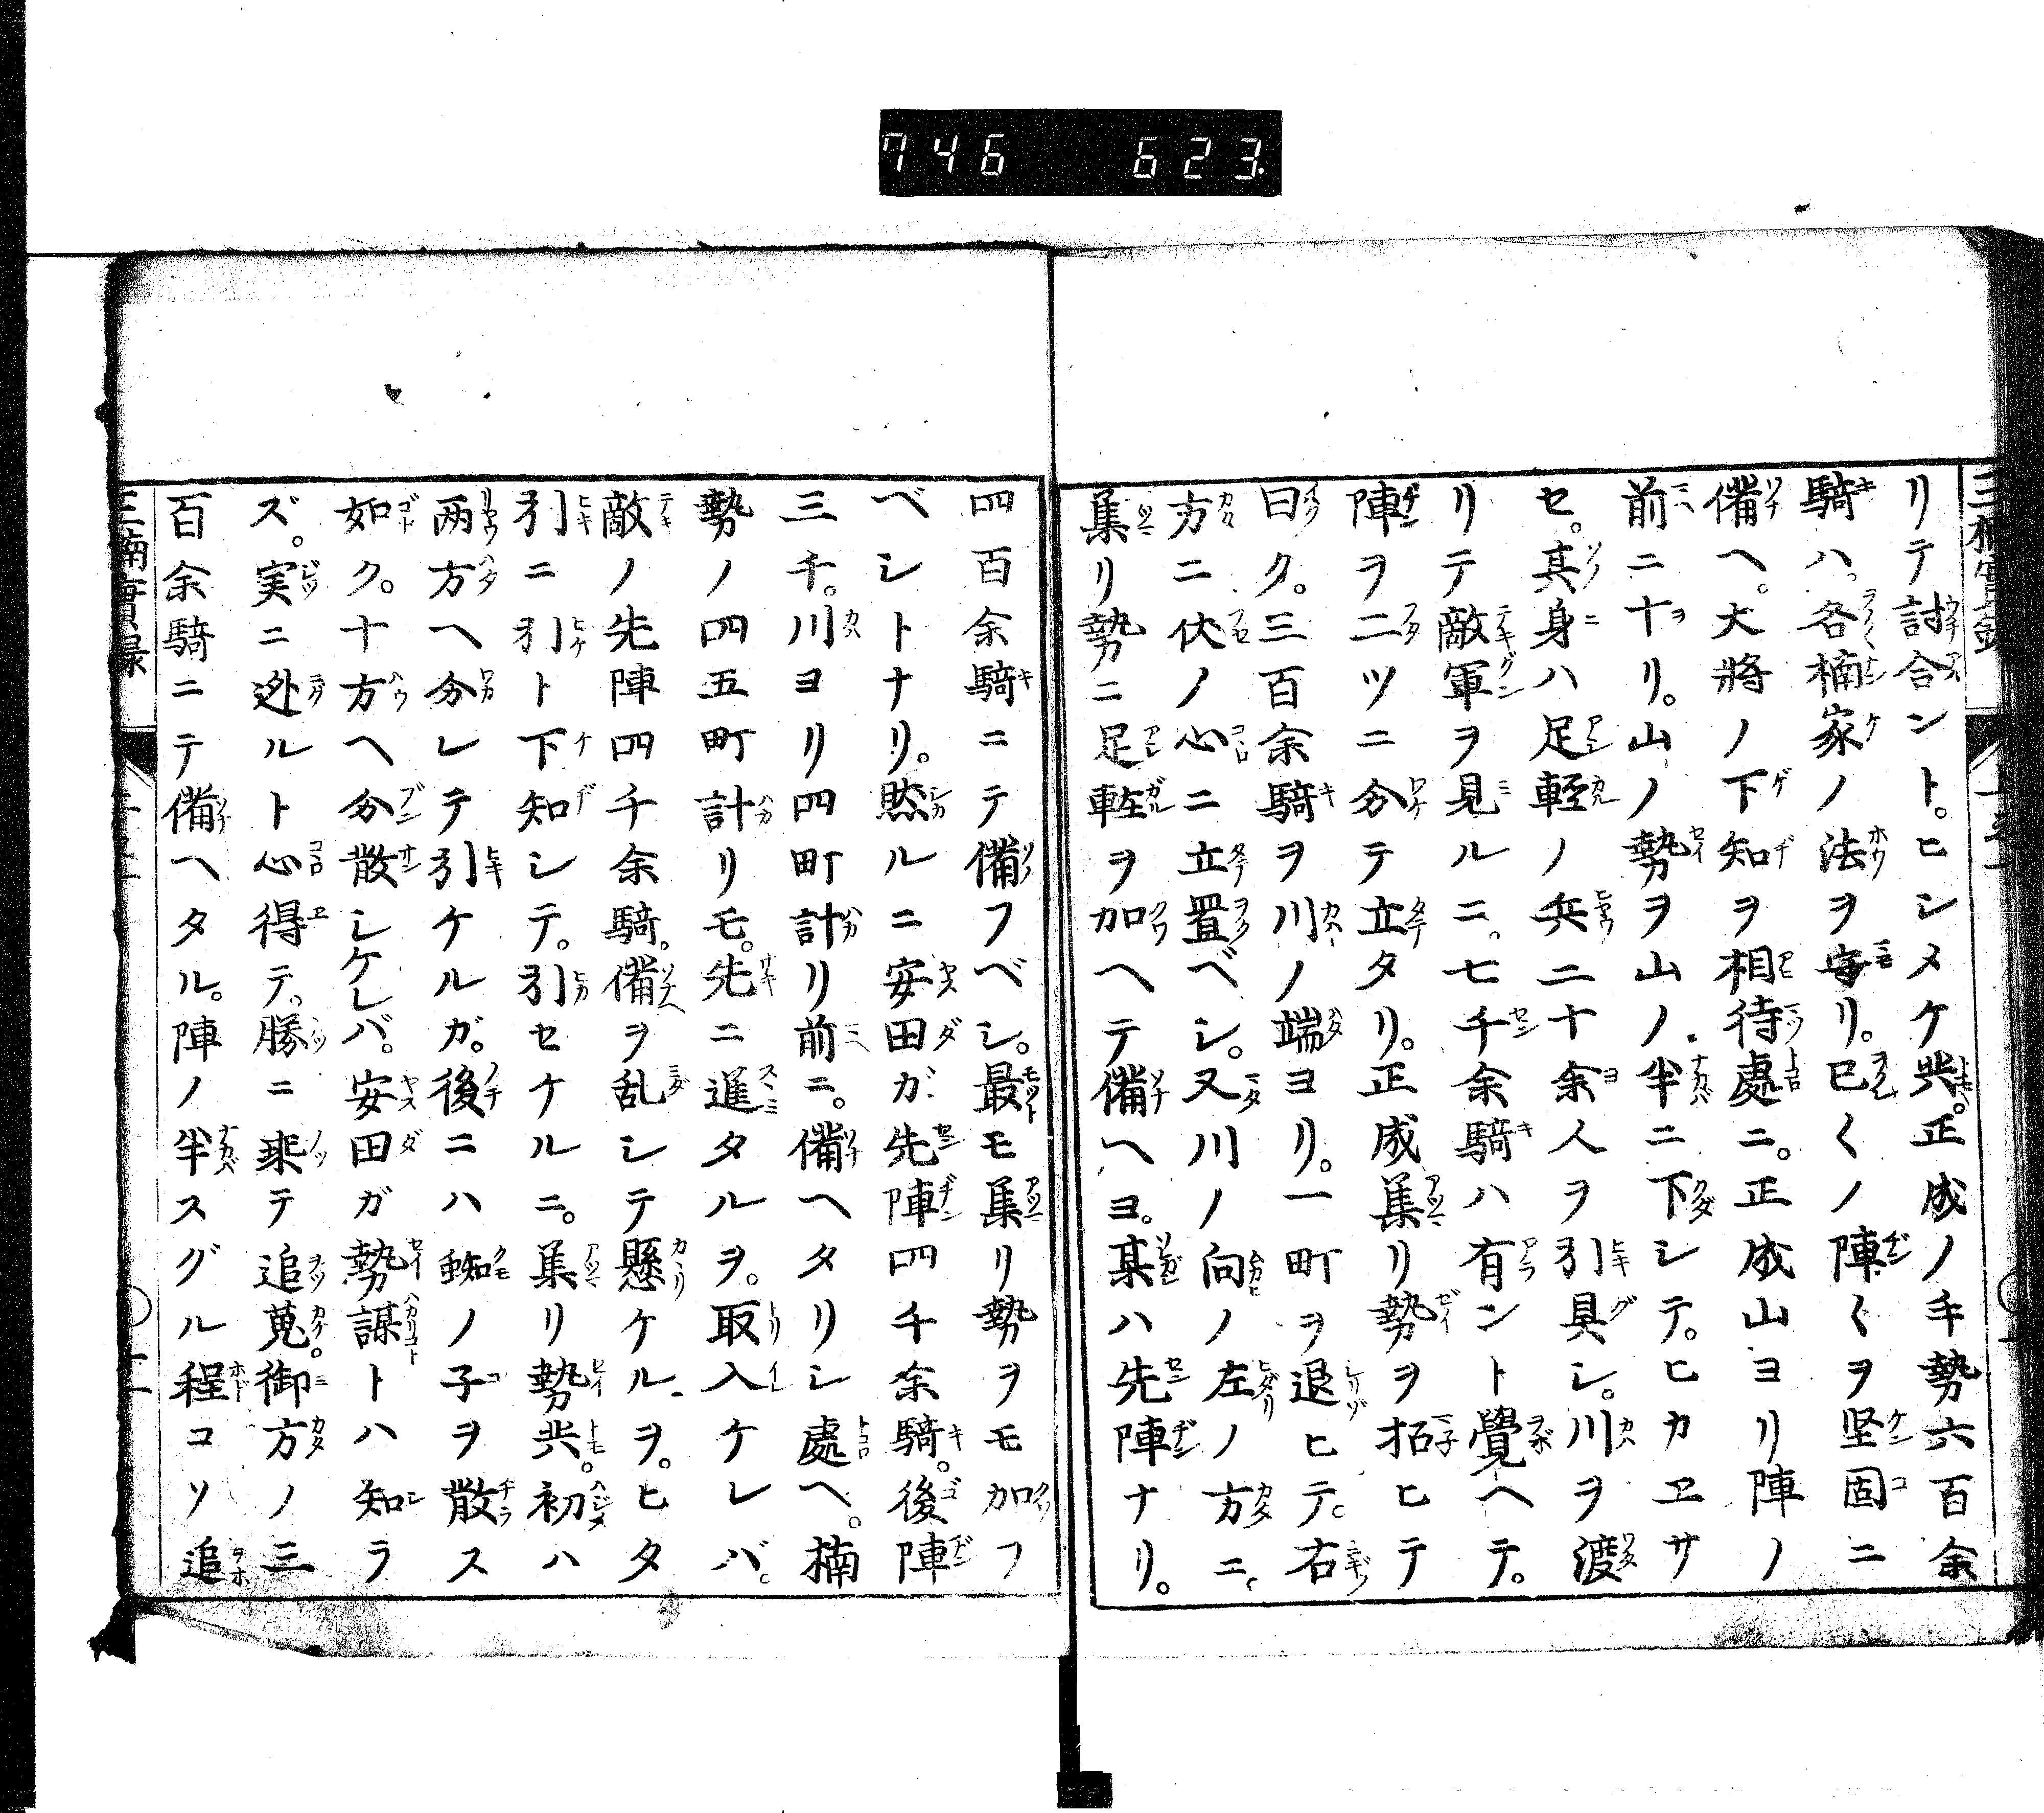 746 623.
リテ討合ント。ヒシメケ共。正成ノ手勢六百余
騎ハ。各楠家ノ法ヲ守リ。已〱ノ陣〱ヲ堅固ニ
備ヘ。大將ノ下知ヲ相待處ニ。正成山ヨリ陣ノ
前ニ十リ。山ノ勢ヲ山ノ半ニ下シテ。ヒカヱサ
セ。其身ハ足軽ノ兵二十余人ヲ引具シ。川ヲ渡
リテ敵軍ヲ見ルニ。七千余騎ハ有ント覺ヘテ。
陣ヲ二ツニ分テ立タリ。正成集リ勢ヲ招ヒテ
曰ク。三百余騎ヲ川ノ端ヨリ。一町ヲ退ヒテ。右
方ニ伏ノ心ニ立置ベシ。又川ノ向ノ左ノ方ニ。
集リ勢ニ足軽ヲ加ヘテ備ヘヨ。某ハ先陣ナリ。
四百余騎ニテ備フベシ。最モ集リ勢ヲモ加フ
ベシトナリ。然ルニ安田ガ先陣四千余騎。後陣
三千。川ヨリ四町計リ前ニ。備ヘタリシ處ヘ。楠
勢ノ四五町計リモ。先ニ進タルヲ。取入ケレバ。
敵ノ先陣四千余騎。備ヲ乱シテ懸ケルヲ。ヒタ
引ニ引ト下知シテ。引セケルニ。集リ勢共。初ハ
両方ヘ分レテ引ケルガ。後ニハ蜘ノ子ヲ散ス
如ク。十方ヘ分散シケレバ。安田ガ勢謀トハ知ラ
ズ。実ニ迯ルト心得テ。勝ニ乗テ追蒐。御方ノ三
百余騎ニテ備ヘタル。陣ノ半スグル程コソ追
三楠實録